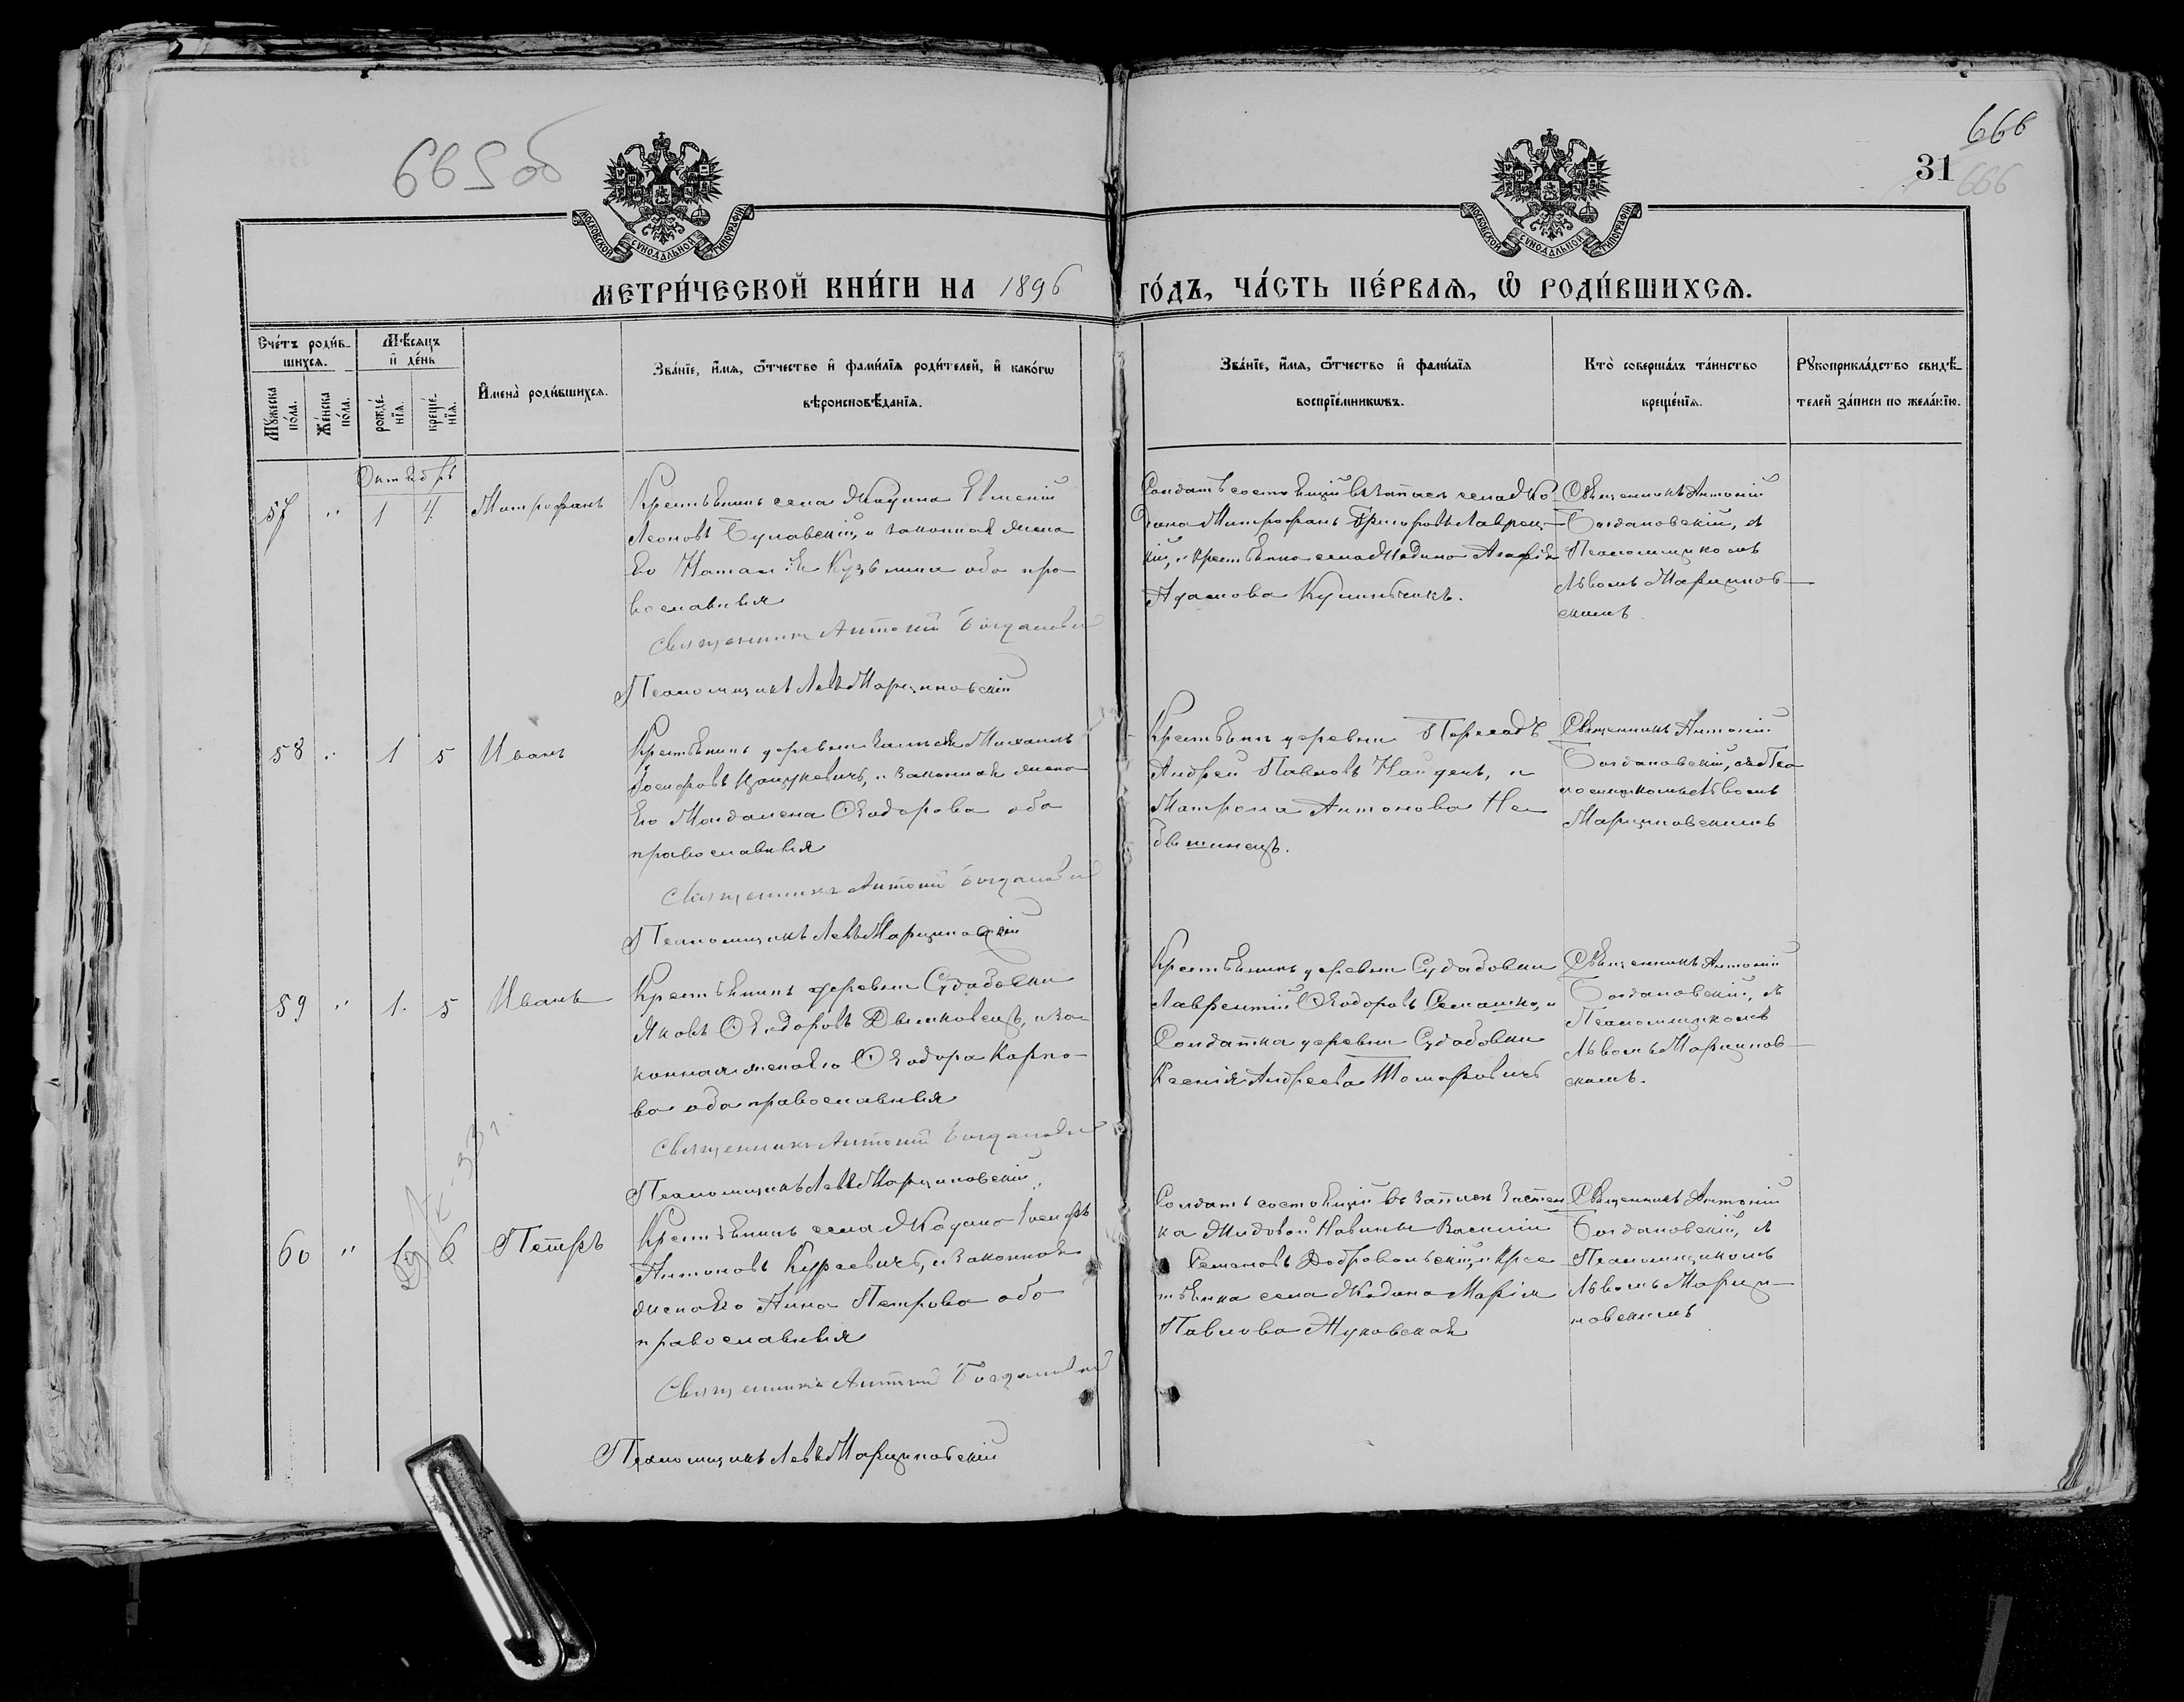 665 об
666
31
666
МОСКОВСКОЙ СѴНОДАЛЬНОЙ ТИПОГРАФІИ
МОСКОВСКОЙ СѴНОДАЛЬНОЙ ТИПОГРАФІИ
МЕТРИ́ЧЕСКОЙ КНИ́ГИ НА 1896 ГО́ДЪ, ЧА́СТЬ ПЕ́РВАѦ, Ѿ РОДИ́ВШИХСѦ.
Сче́тъ роди́в-
шихсѧ.
Мꙋ́жеска по́ла.
Же́нска по́ла.
Мѣ́сѧцъ
и҆ де́нь
рожде́-нїѧ.
креще́-нїѧ.
И҆мена̀ роди́вшихсѧ.
Зва́нїе, и҆́мѧ, ѻ҆́тчество и҆ фами́лїѧ роди́телей, и҆ како́гѡ
вѣроисповѣ́данїѧ.
Зва́нїе, и҆́мѧ, ѻ҆́тчество и҆ фами́лїѧ
воспрїе́мникѡвъ.
Кто̀ соверша́лъ та́инство
креще́нїѧ.
Рꙋкоприкла́дство свидѣ́-
телей за́писи по жела́нїю.
Октябрь
57 " 1 4 Митрофанъ
Крестьянинъ села Жодина Евгеній
Леоновъ Булавскій, и законная жена
его Наталія Кузьмина оба пра-
вославныя
Священникъ Антоній Богдановскій
Псаломщикъ Левъ Марциновскій
Солдатъ состоящій въ запасѣ села Жо-
дина Митрофанъ Григоровъ Лаврец-
кій, и крестьянка села Жодина Агафія
Адамова
Священникъ Антоній
Богдановскій, съ
Псаломщикомъ
Львомъ Марцинов-
скимъ.
58 " 1 5 Иванъ
Крестьянинъ деревни Михаилъ
Іосифовъ и законная жена
его Магдалена Ѳеодорова оба
православныя
Священникъ Антоній Богдановскій
Псаломщикъ Левъ Марциновскій
Крестьянинъ деревни
Андрей Павловъ Найденъ, и
Матрона Антонова Не-
Священникъ Антоній
Богдановскій, съ Пса-
ломщикомъ Львомъ
Марциновскимъ
59 " 1. 5 Иванъ
Крестьянинъ деревни Судобовки
Яковъ Ѳеодоровъ и за-
конная жена его Ѳеодора Карпо-
ва оба православныя
Священникъ Антоній Богдановскій
Псаломщикъ Левъ Марциновскій
Крестьянинъ деревни Судобовки
Лаврентій Ѳеодоровъ Семашко, и
Солдатка деревни Судобовки
Ксенія Андреева
Священникъ Антоній
Богдановскій, съ
Псаломщикомъ
Львомъ Марцинов-
скимъ.
60 " 6 Петръ
Крестьянинъ села Жодина Іосифъ
Антоновъ Курсевичъ, и законная
жена его Анна Петрова оба
православныя
Священникъ Антоній Богдановскій
Псаломщикъ Левъ Марциновскій
Солдатъ состоящій въ запасѣ застѣн-
ка Василій
Семеновъ Добровольскій, и крес-
тьянка села Жодина Марія
Павлова Жуковская
Священникъ Антоній
Богдановскій, съ
Псаломщикомъ
Львомъ Марци-
новскимъ